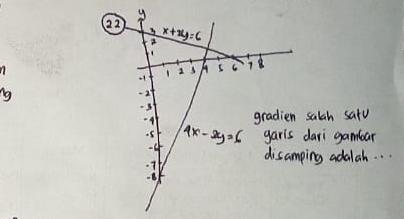 22
y
3
x+2y=6
2
1 2 3 4 5 6 7 8
-1
-2
-3
-4
-5
-6
-7
-8
4x-2y=6
gradien salah satu
garis dari gambar
disamping adalah ...
ng